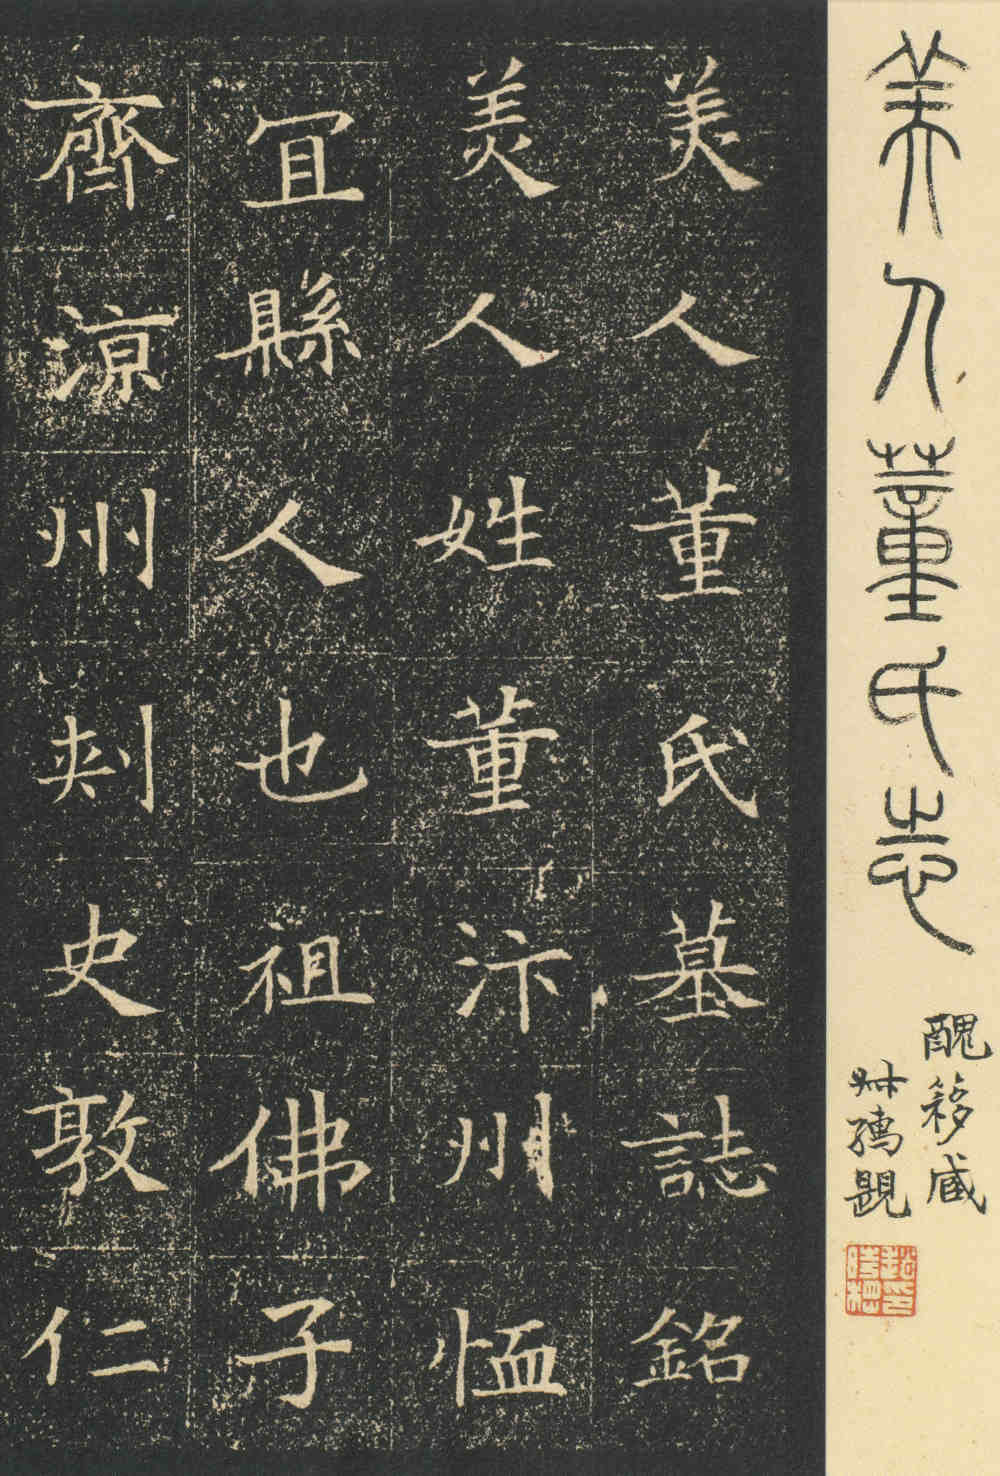 美人董氏志
醜簃藏
叔孺題
美人董氏墓誌銘
美人姓董汴州恤
宜縣人也祖佛子
齊涼州刺史敦仁